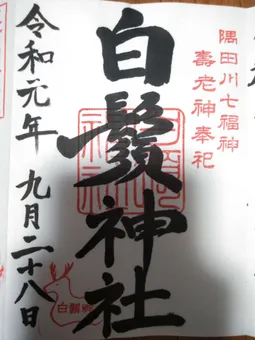 隅田川七福神
壽老神奉祀
白鬚神社
令和元年九月二十八日
白鬚神